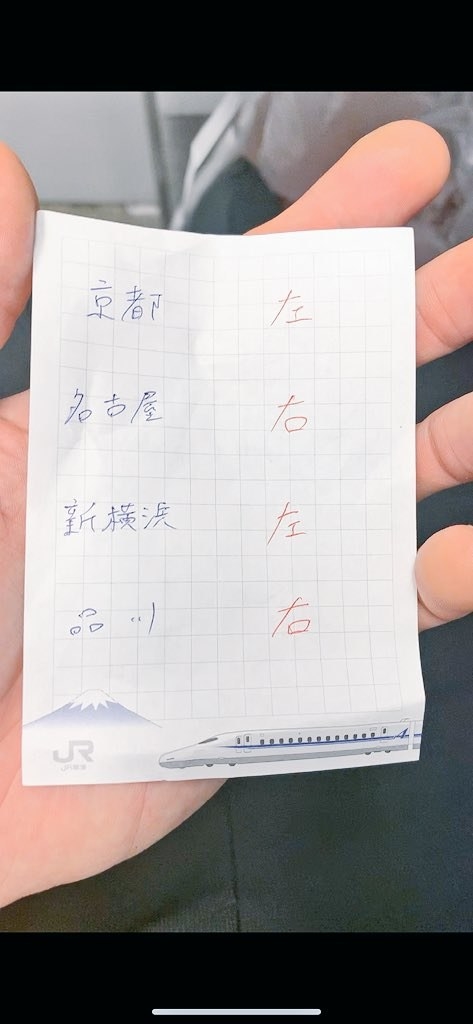 京都 左
名古屋 右
新横浜 左
品川 右
JR
JR東海